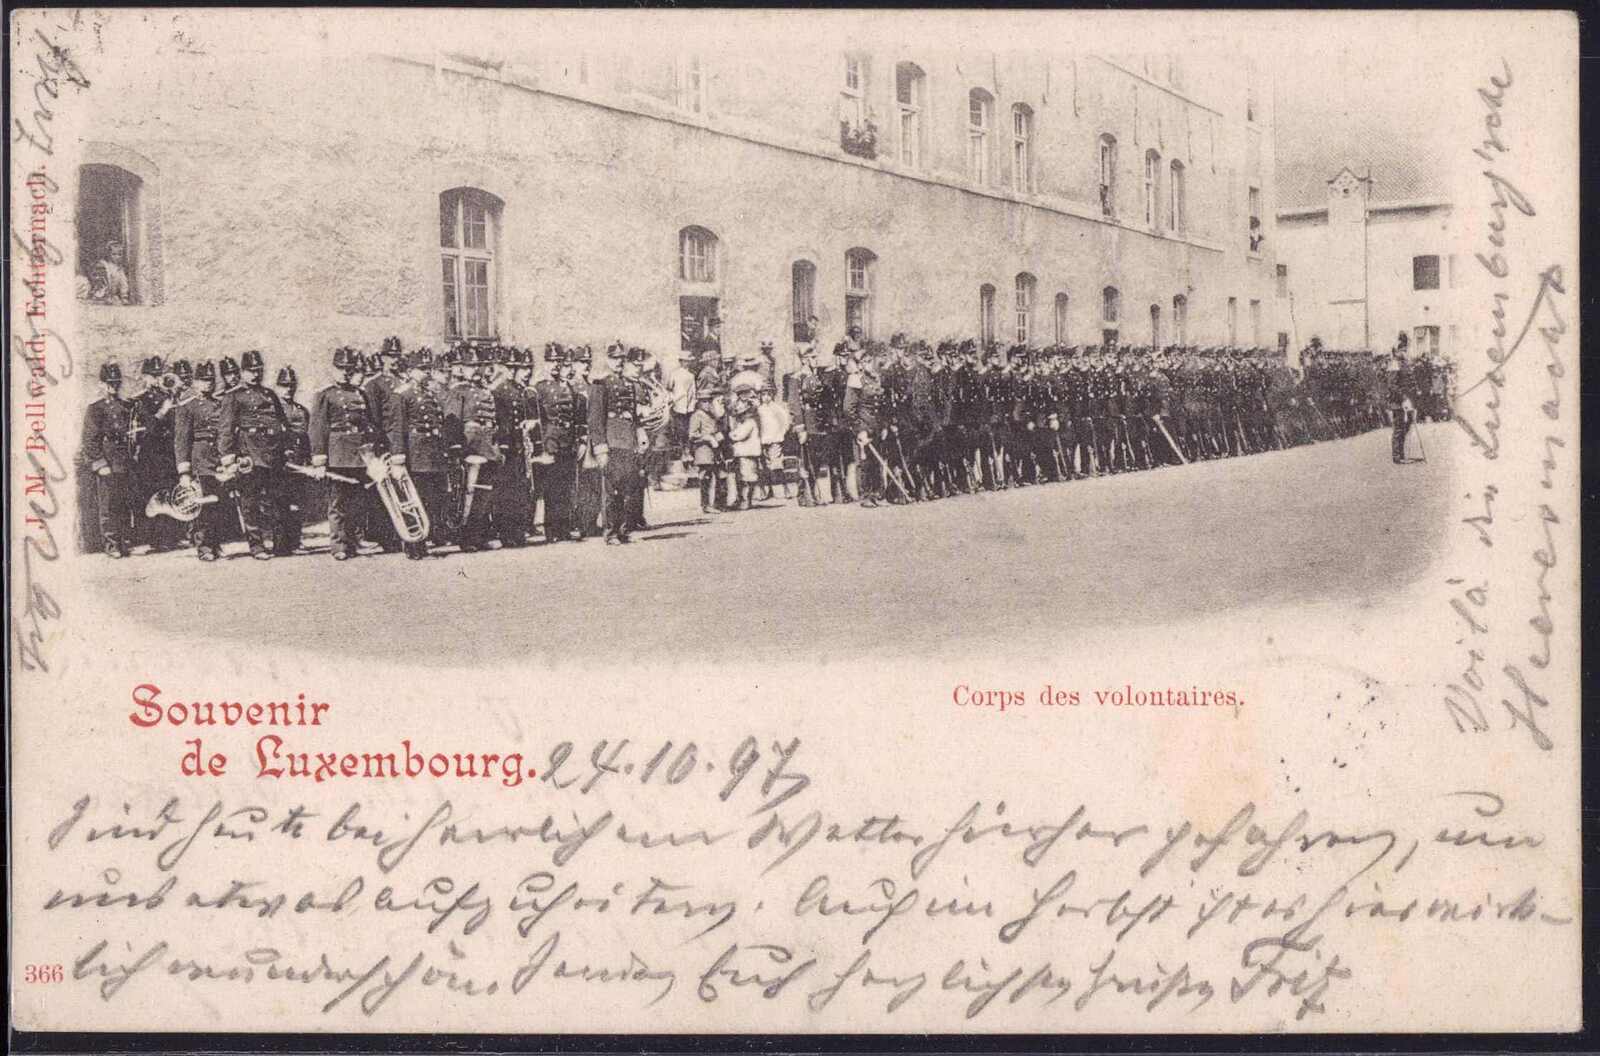 J. M. Bellwald, Echternach.
Corps des volontaires.
Souvenir
de Luxembourg.
24.10.97
Sind heute bei herrlichem Wetter hierher gefahren, um
uns etwas aufzuheitern. Auch im Herbst ist es hier wirk-
lich wunderschön. Senden Euch herzlichste Grüße Fritz
366
Voilà die Luxemburg'sche
Heeresmacht